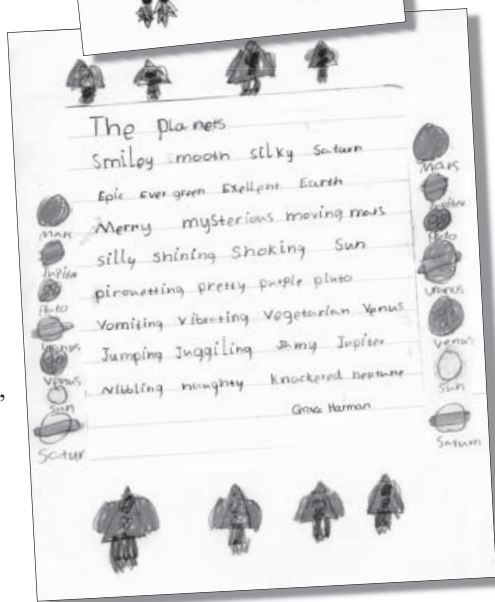 The planets
Smiley smooth silky Saturn
Epic Ever green Exellent Earth
Merry mysterious moving mars
silly shining Shaking Sun
pirouetting pretty purple pluto
Vomiting vibrating Vegetarian Venus
Jumping Juggiling Jupiter
Nibbling naughty knackered neptune
Grace Harman
Mars
Jupiter
Pluto
Uranus
Venus
Sun
Satur
Mars
Jupiter
Pluto
Uranus
Venus
Sun
Saturn
,